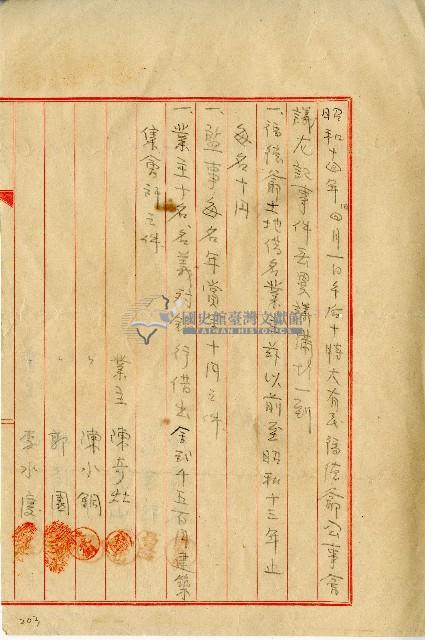 昭和十四年四月一日午后十時大有岳福德爺公事會
議左記事件
一、福德爺土地借名業以前至昭和十三年止
每名十円
一、監事每名年賞十円之件
一、業主十名名義対銀行借出金貳千五百円建築
集會所之件
業主 陳奇灶
〃 陳小銅
〃 郭園
〃 李水慶
國史館臺灣文獻館
TAIWAN HISTORICA
203